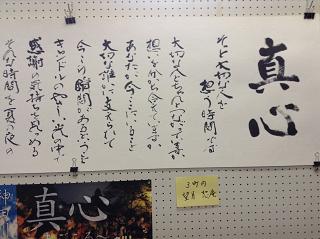 真心
そっと大切な人を
想う時間である
大切な人とちゃんとつながっていますか
想いを分ち合えていますか
あなたが今ここにいること
大切な誰かに支えられて
今この瞬間があるということを
キャンドルのやさしい光の中で
感謝の気持ちを見つめる
そんな時間を夏の夜の
3町の
望月
真心